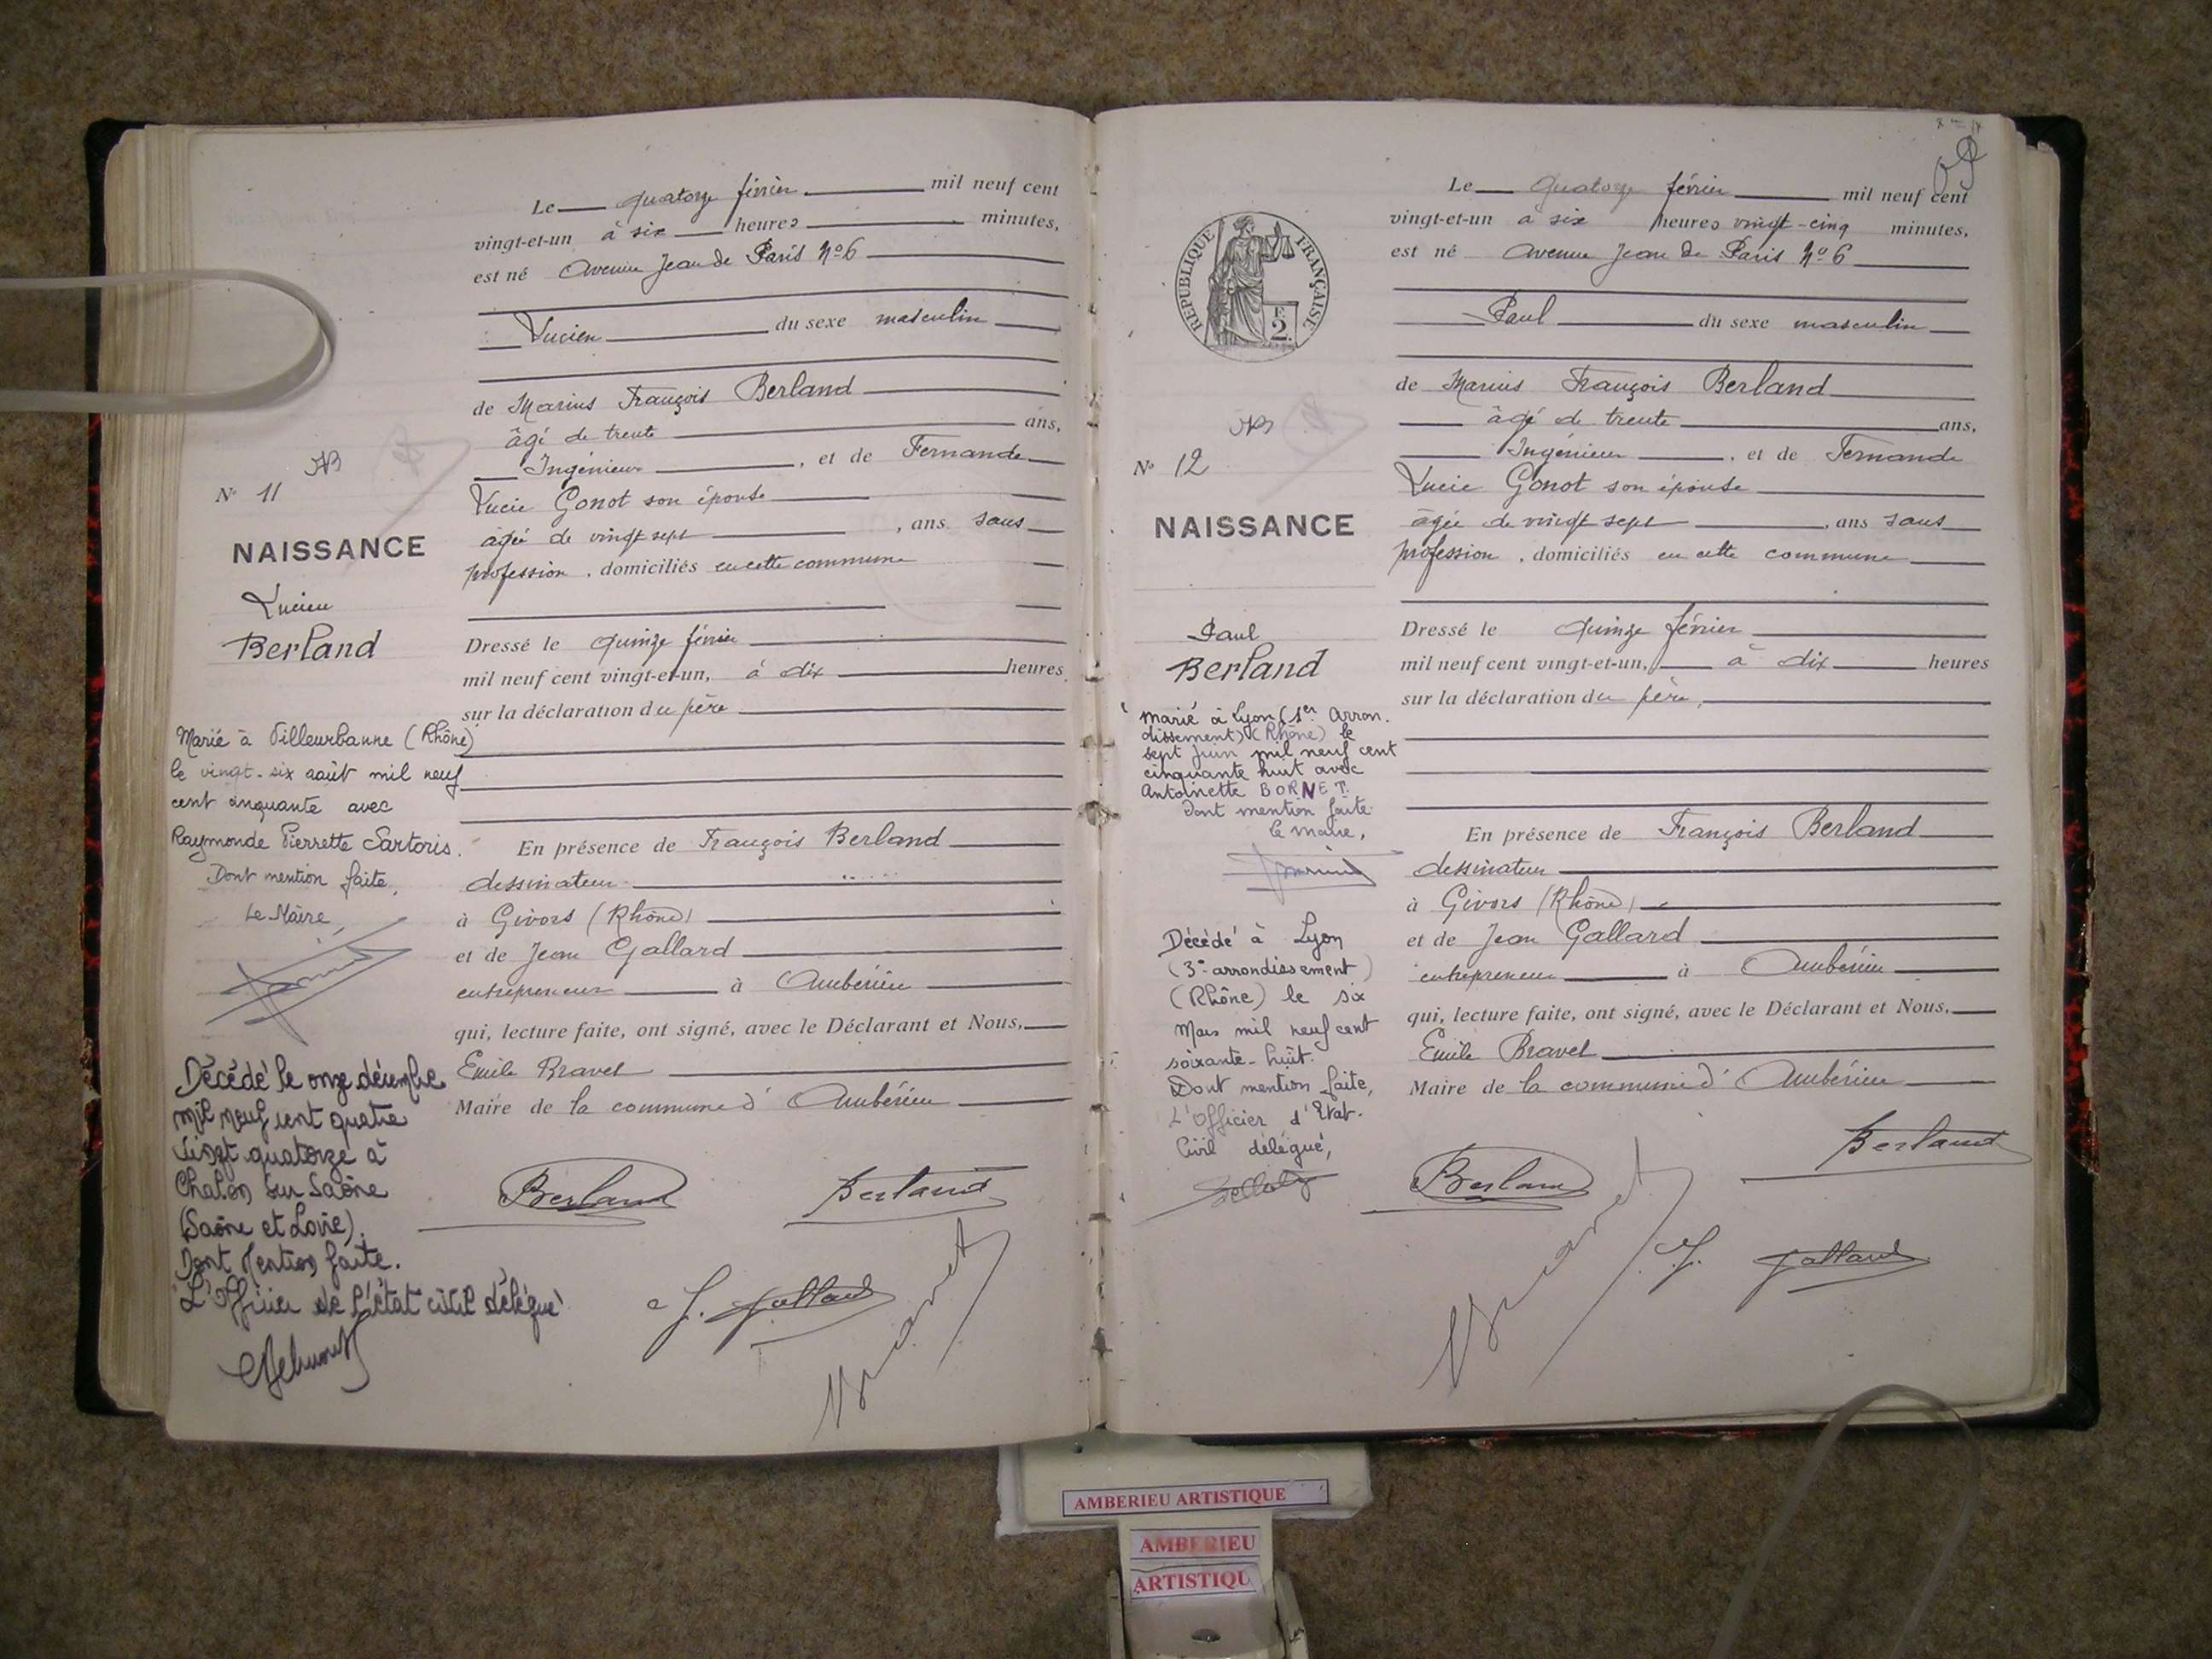 Le quatorze février mil neuf cent
vingt-et-un à six heures minutes,
est né Avenue Jean de Paris Nº 6
Lucien du sexe masculin
de Marius François Berland
âgé de trente ans,
Ingénieur, et de Fernande
Lucie Gonot son épouse
âgée de vingt sept, ans sans
profession, domiciliés en cette commune
Dressé le quinze février
mil neuf cent vingt-et-un, à dix heures
sur la déclaration du père
En présence de François Berland
dessinateur
à Givors (Rhône)
et de Jean Gallard
entrepreneur à Ambérieu
qui, lecture faite, ont signé, avec le Déclarant et Nous,
Emile Bravet
Maire de la commune d'Ambérieu
Berland Berland
J. Gallard
Bravet
Nº 11
NAISSANCE
Lucien
Berland
Marié à Villeurbanne (Rhône)
le vingt-six août mil neuf
cent cinquante avec
Raymonde Pierrette Sartoris.
Dont mention faite,
Le Maire,
Décédé le onze décembre
mil neuf cent quatre
vingt quatorze à
Chalon sur Saône
(Saône et Loire).
Dont Mention faite.
L'Officier de l'état civil délégué
Le quatorze février mil neuf cent
vingt-et-un à six heures vingt-cinq minutes,
est né avenue Jean de Paris Nº 6
Paul du sexe masculin
de Marius François Berland
âgé de trente ans,
Ingénieur, et de Fernande
Lucie Gonot son épouse
âgée de vingt sept, ans sans
profession, domiciliés en cette commune
Dressé le quinze février
mil neuf cent vingt-et-un, à dix heures
sur la déclaration du père,
En présence de François Berland
dessinateur
à Givors (Rhône)
et de Jean Gallard
entrepreneur à Ambérieu
qui, lecture faite, ont signé, avec le Déclarant et Nous,
Emile Bravet
Maire de la commune d'Ambérieu
Berland
Berland
J. Gallard
Bravet
REPUBLIQUE FRANÇAISE
F.
2.
Nº 12
NAISSANCE
Paul
Berland
Marié à Lyon (1er Arron.
dissement) (Rhône) le
sept juin mil neuf cent
cinquante huit avec
Antoinette BORNET.
Dont mention faite.
le maire,
Décédé à Lyon
(3e arrondissement)
(Rhône) le six
Mars mil neuf cent
soixante-huit.
Dont mention faite,
L'Officier d'Etat-
Civil délégué,
AMBERIEU ARTISTIQUE
AMBERIEU
ARTISTIQU